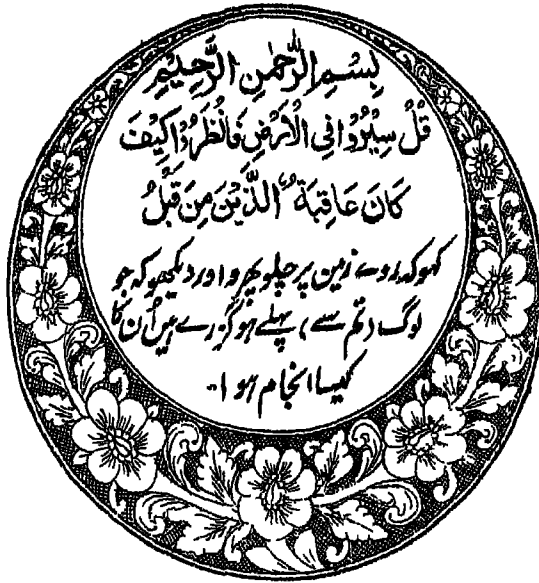 بِسْمِ الرَّحْمٰنِ الرَّحِيْمِ
قُلْ سِيْرُوْا فِي الْاَرْضِ فَانْظُرُوْا كَيْفَ
كَانَ عَاقِبَةُ الَّذِيْنَ مِنْ قَبْلُ
کہو کہ روے زمین پر چلو پھرو اور دیکھو کہ جو
لوگ (تم سے) پہلے ہو گزرے ہیں اُن کا
کیسا انجام ہوا -